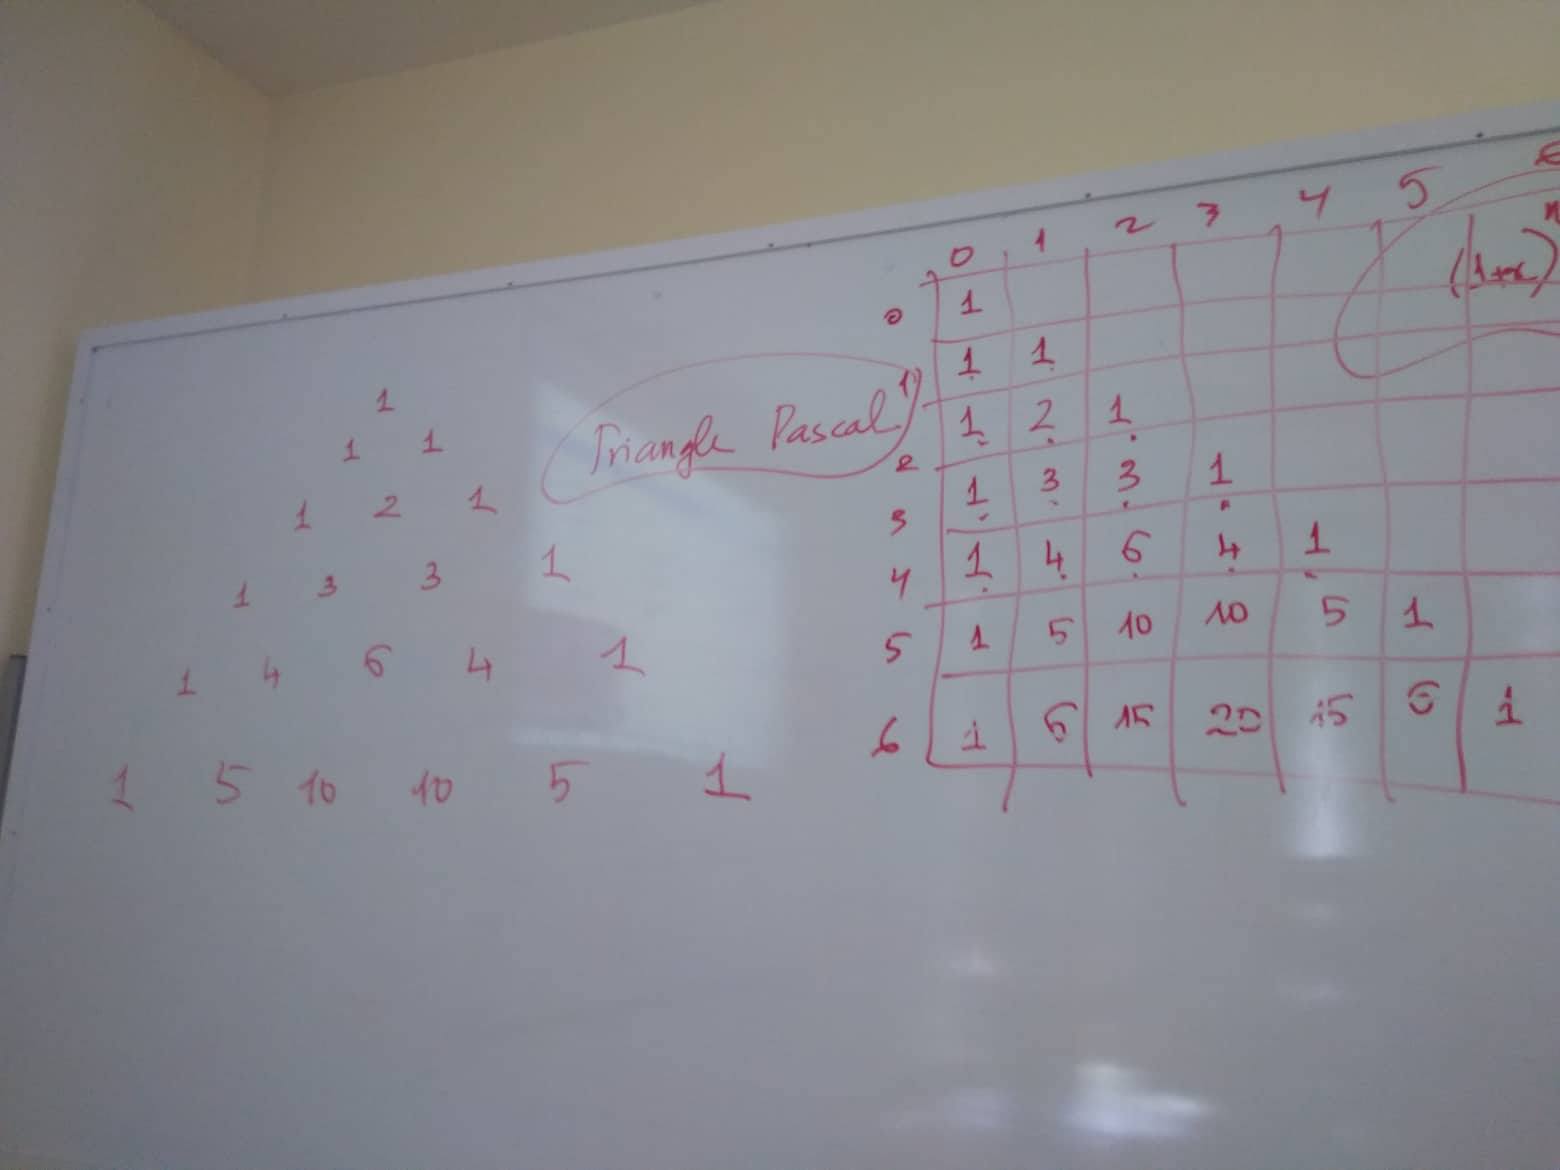 1
1 1
1 2 1
1 3 3 1
1 4 6 4 1
1 5 10 10 5 1
Triangle Pascal
0 1 2 3 4 5
0 1
1 1 1
2 1 2 1
3 1 3 3 1
4 1 4 6 4 1
5 1 5 10 10 5 1
6 1 6 15 20 15 6 1
(1+x)^n